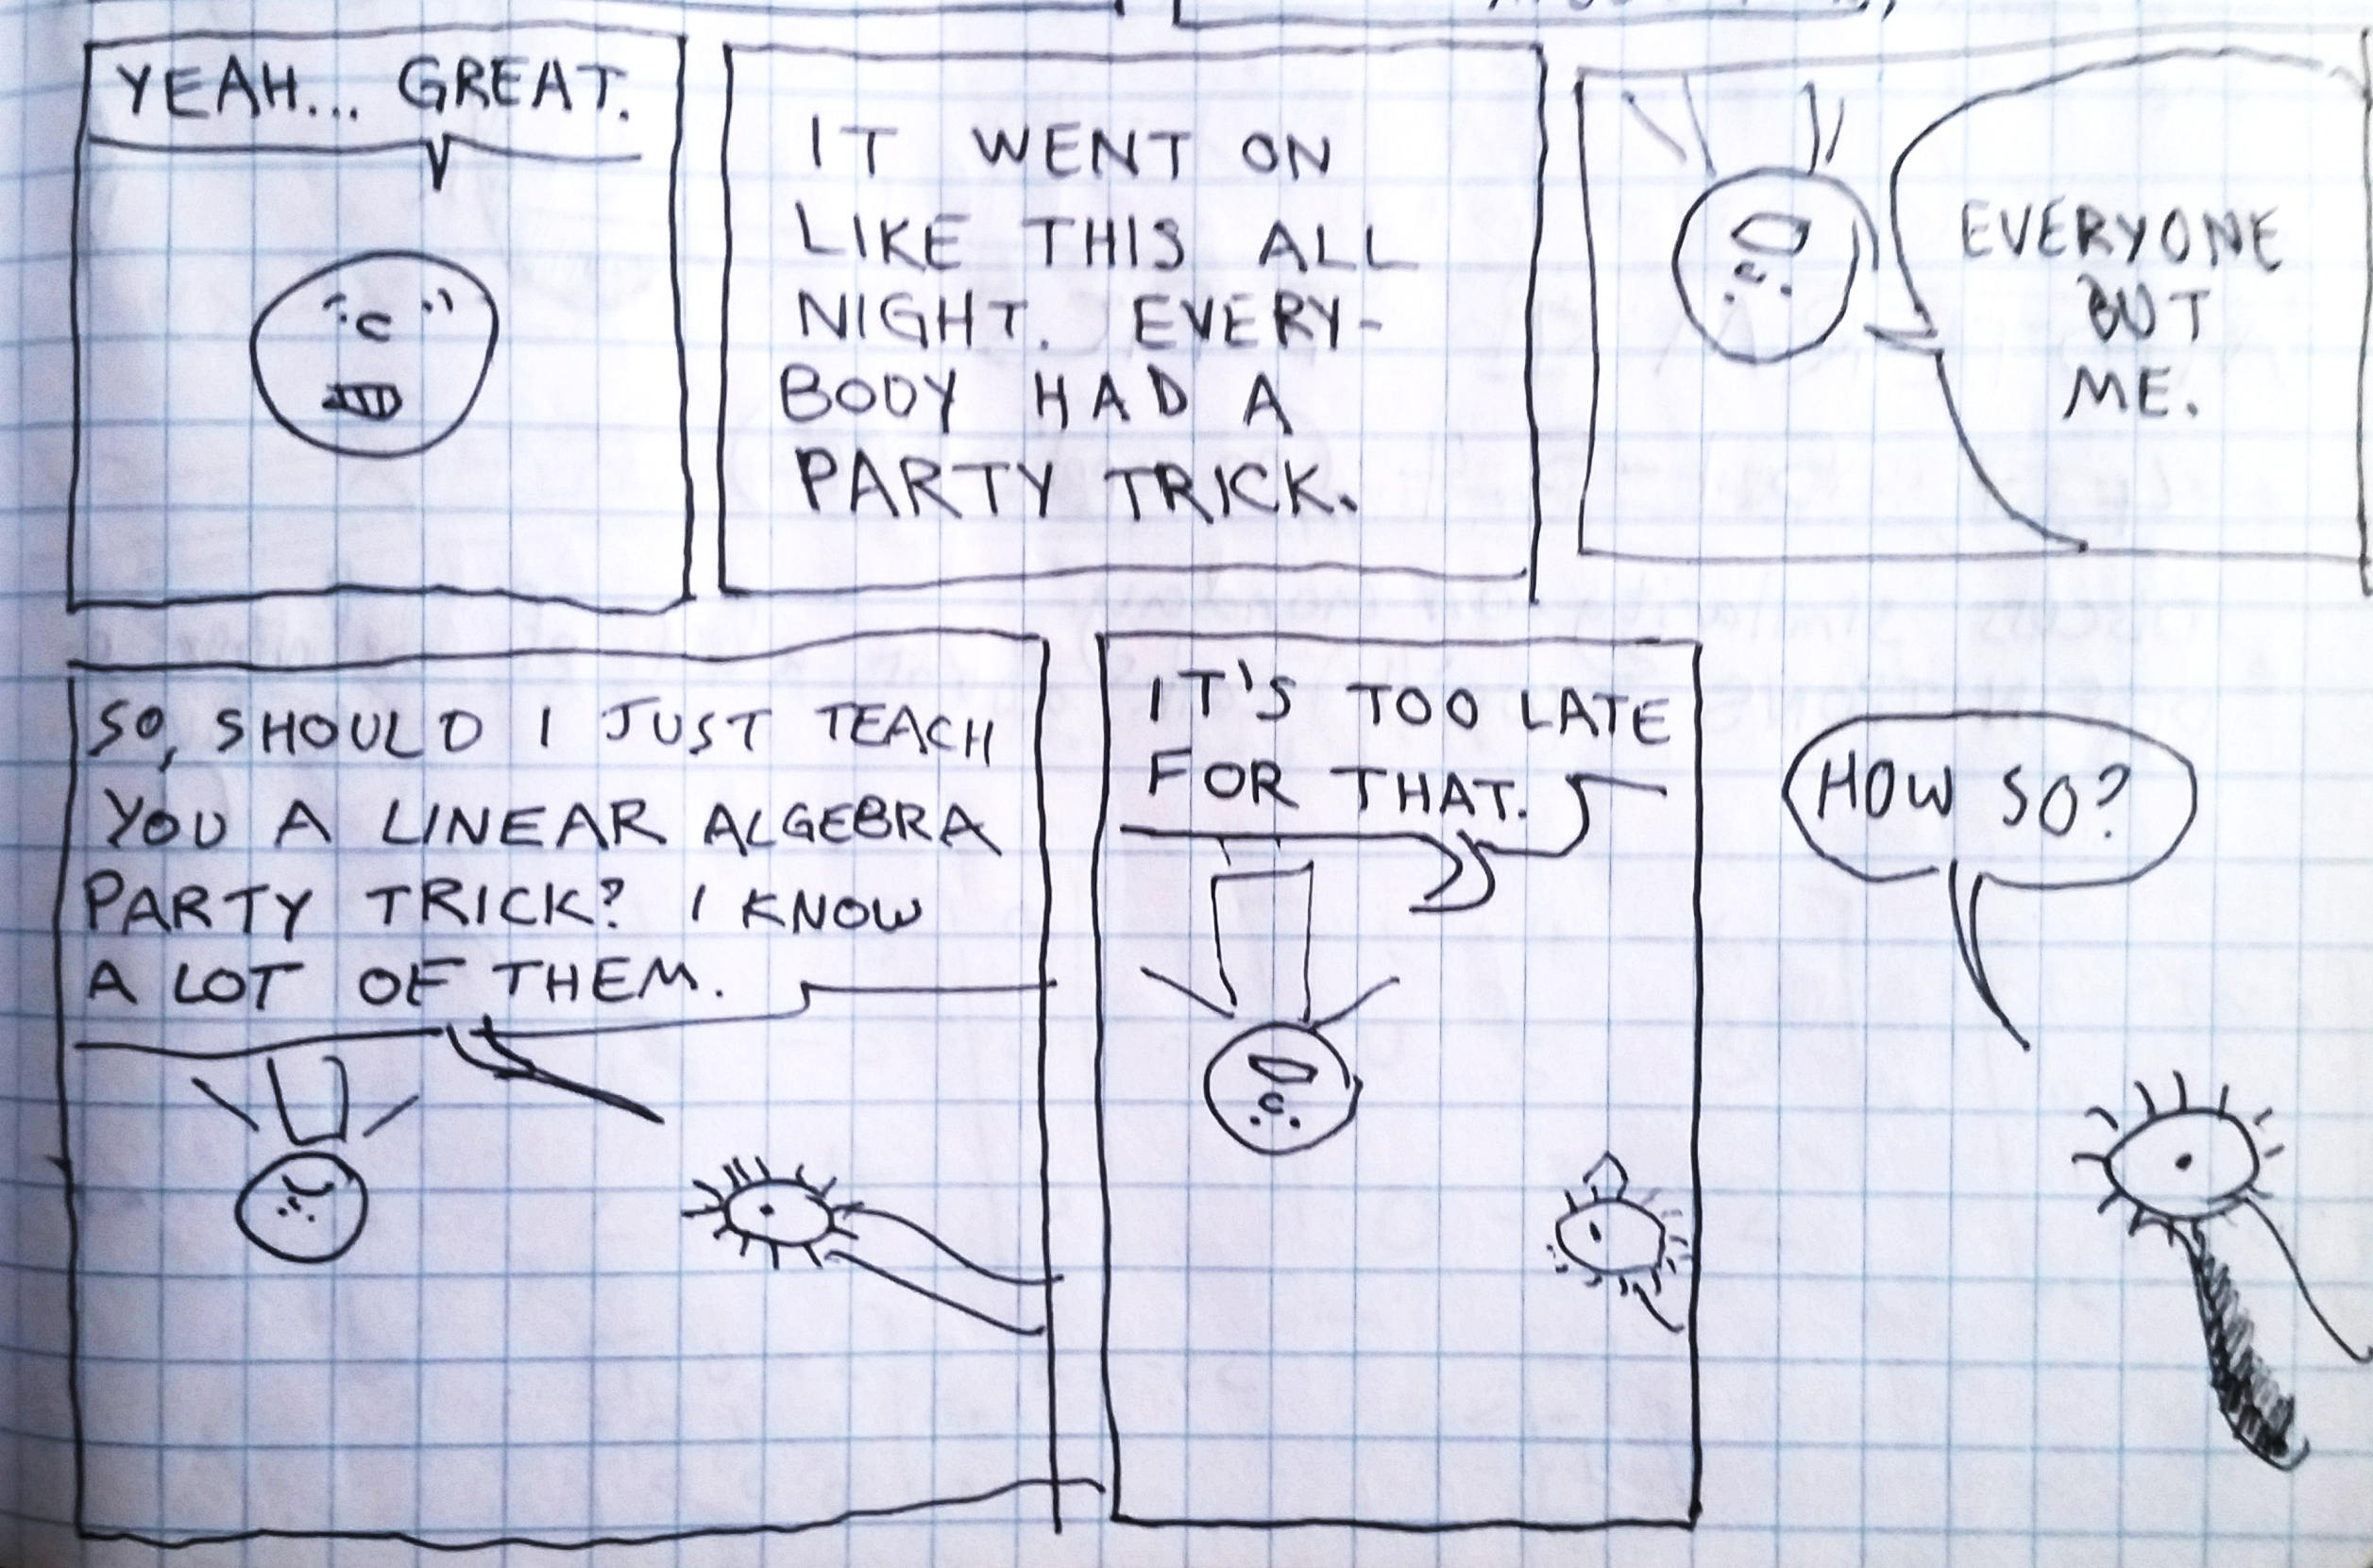 YEAH... GREAT.
IT WENT ON
LIKE THIS ALL
NIGHT. EVERY-
BODY HAD A
PARTY TRICK.
EVERYONE
BUT
ME.
SO, SHOULD I JUST TEACH
YOU A LINEAR ALGEBRA
PARTY TRICK? I KNOW
A LOT OF THEM.
IT'S TOO LATE
FOR THAT.
HOW SO?